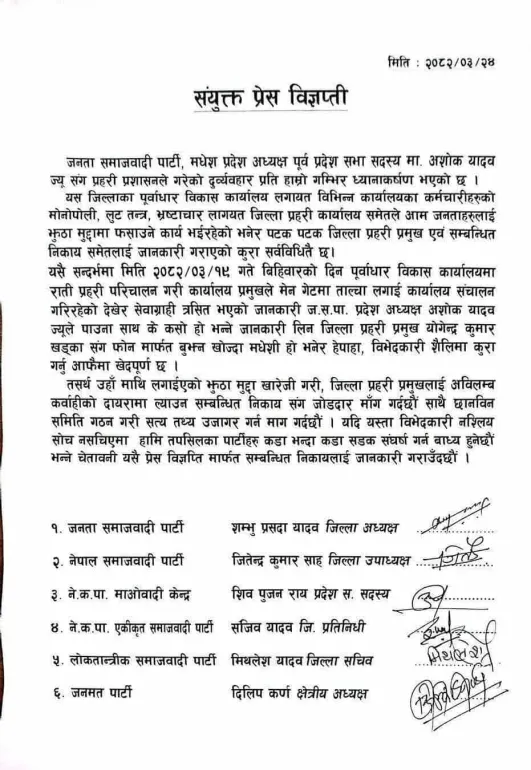 मिति : २०८२/०३/२४
संयुक्त प्रेस विज्ञप्ती
जनता समाजवादी पार्टी, मधेश प्रदेश अध्यक्ष पूर्व प्रदेश सभा सदस्य मा. अशोक यादव
ज्यू संग प्रहरी प्रशासनले गरेको दुर्व्यवहार प्रति हाम्रो गम्भिर ध्यानाकर्षण भएको छ ।
यस जिल्लाका पूर्वाधार विकास कार्यालय लगायत विभिन्न कार्यालयका कर्मचारीहरुको
मोनोपोली, लुट तन्त्र, भ्रष्टाचार लागयत जिल्ला प्रहरी कार्यालय समेतले आम जनताहरुलाई
झुठा मुद्दामा फसाउने कार्य भईरहेको भनेर पटक पटक जिल्ला प्रहरी प्रमुख एवं सम्बन्धित
निकाय समेतलाई जानकारी गराएको कुरा सर्वविधितै छ।
यसै सन्दर्भमा मिति २०८२/०३/१९ गते विहिवारको दिन पूर्वाधार विकास कार्यालयमा
राती प्रहरी परिचालन गरी कार्यालय प्रमुखले मेन गेटमा ताल्चा लगाई कार्यालय संचालन
गरिरहेको देखेर सेवाग्राही त्रसित भएको जानकारी ज.स.पा. प्रदेश अध्यक्ष अशोक यादव
ज्यूले पाउना साथ के कसो हो भन्ने जानकारी लिन जिल्ला प्रहरी प्रमुख योगेन्द्र कुमार
खड्का संग फोन मार्फत बुझ्न खोज्दा मधेशी हो भनेर हेपाहा, विभेदकारी शैलिमा कुरा
गर्नु आफैमा खेदपूर्ण छ ।
तसर्थ उहाँ माथि लगाईएको झुठा मुद्दा खारेजी गरी, जिल्ला प्रहरी प्रमुखलाई अविलम्ब
कर्वाहीको दायरामा ल्याउन सम्बन्धित निकाय संग जोडदार माँग गर्दछौं साथै छानविन
समिति गठन गरी सत्य तथ्य उजागर गर्न माग गर्दछौं । यदि यस्ता विभेदकारी नश्लिय
सोच नसचिएमा हामि तपसिलका पार्टीहरु कडा भन्दा कडा सडक संघर्ष गर्न बाध्य हुनेछौं
भन्ने चेतावनी यसै प्रेस विज्ञप्ति मार्फत सम्बन्धित निकायलाई जानकारी गराउँदछौं ।
१. जनता समाजवादी पार्टी शम्भु प्रसदा यादव जिल्ला अध्यक्ष
२. नेपाल समाजवादी पार्टी जितेन्द्र कुमार साह जिल्ला उपाध्यक्ष
३. ने.क.पा. माओवादी केन्द्र शिव पुजन राय प्रदेश स. सदस्य
४. ने.क.पा. एकीकृत समाजवादी पार्टी सजिव यादव जि. प्रतिनिधी
५. लोकतान्त्रीक समाजवादी पार्टी मिथलेश यादव जिल्ला सचिव
६. जनमत पार्टी दिलिप कर्ण क्षेत्रीय अध्यक्ष